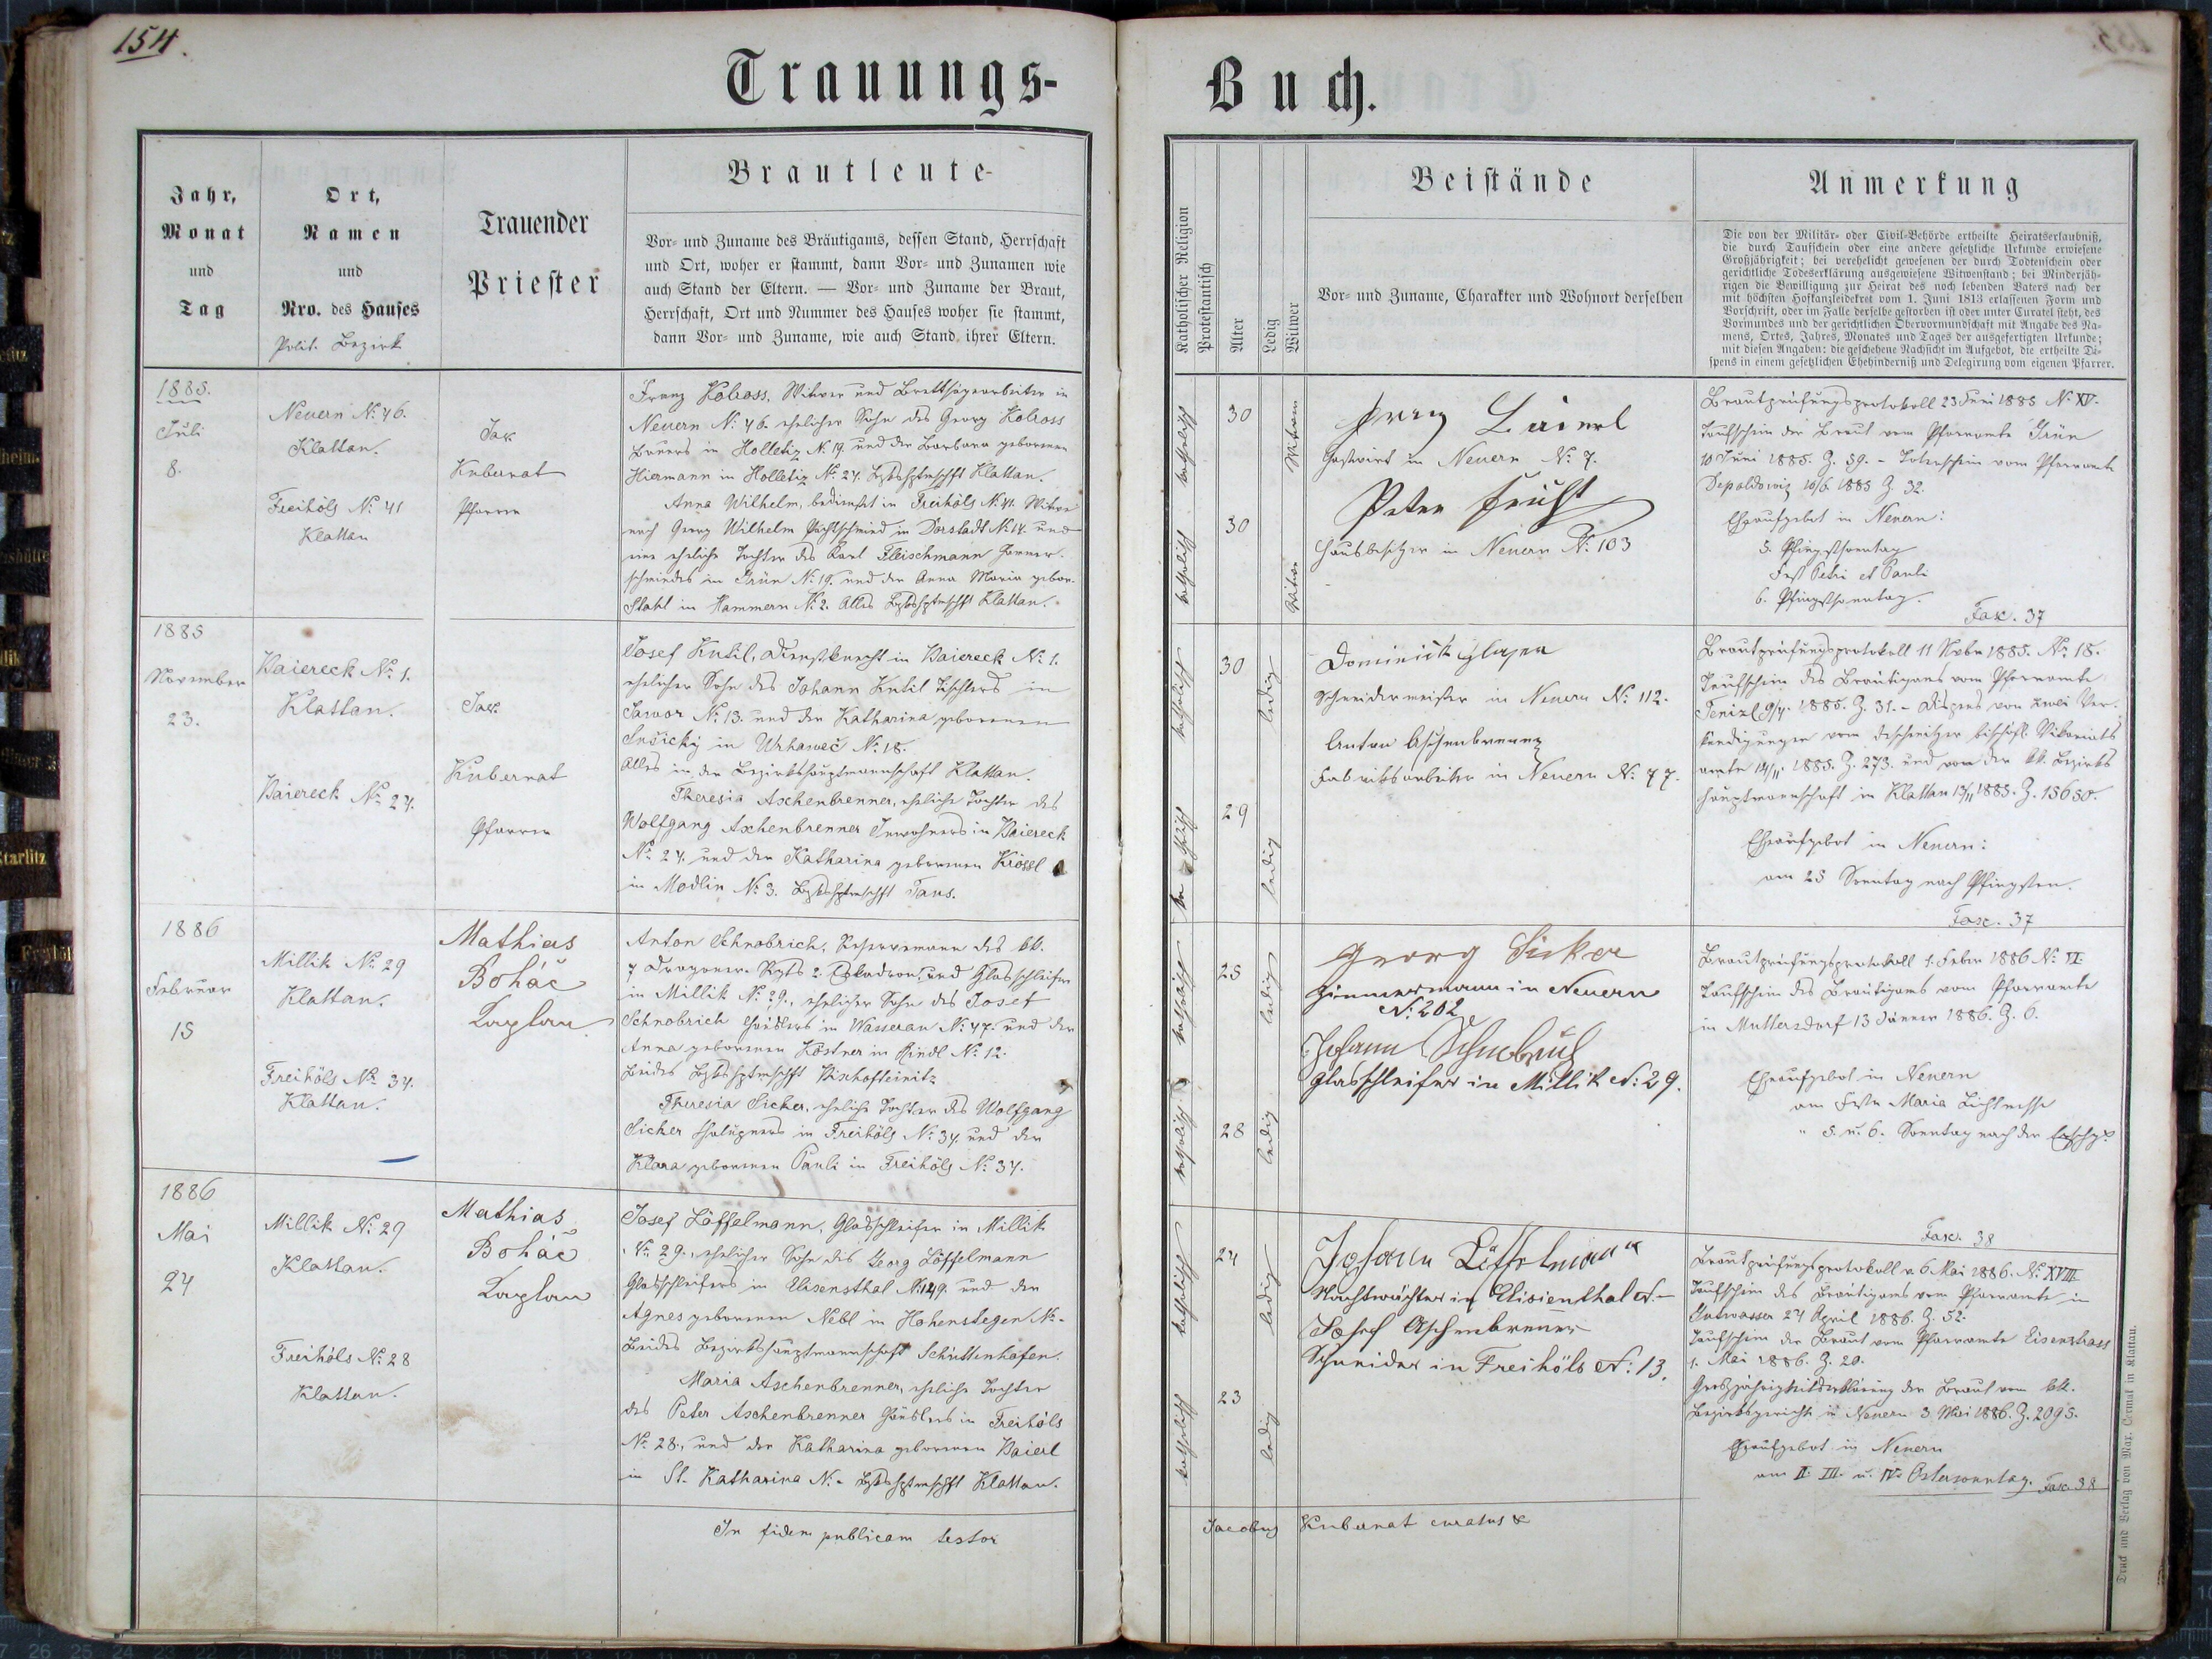 154.
Trauungs-
Buch.
Jahr,
Monat
und
Tag
Ort,
Namen
und
Nro. des Hauses
Polit. Bezirk
Trauender
Priester
Brautleute
Vor- und Zuname des Bräutigams, dessen Stand, Herrschaft
und Ort, woher er stammt, dann Vor- und Zunamen wie
auch Stand der Eltern. — Vor- und Zuname der Braut,
Herrschaft, Ort und Nummer des Hauses woher sie stammt,
dann Vor- und Zuname, wie auch Stand ihrer Eltern.
Katholischer Religion
Protestantisch
Alter
Ledig
Witwer
Beistände
Vor- und Zuname, Charakter und Wohnort derselben
Anmerkung
Die von der Militär- oder Civil-Behörde ertheilte Heiratserlaubniß,
die durch Taufschein oder eine andere gesetzliche Urkunde erwiesene
Großjährigkeit; bei verehelicht gewesenen der durch Todtenschein oder
gerichtliche Todeserklärung ausgewiesene Witwenstand; bei Minderjäh-
rigen die Bewilligung zur Heirat des noch lebenden Vaters nach der
mit höchsten Hofkanzleidekret vom 1. Juni 1813 erlassenen Form und
Vorschrift, oder im Falle derselbe gestorben ist oder unter Curatel steht, des
Vormundes und der gerichtlichen Obervormundschaft mit Angabe des Na-
mens, Ortes, Jahres, Monates und Tages der ausgefertigten Urkunde;
mit diesen Angaben: die geschehene Nachsicht im Aufgebot, die ertheilte Di-
spens in einem gesetzlichen Ehehinderniß und Delegirung vom eigenen Pfarrer.
1885.
Juli
8.
Neuern N: 46.
Klattau.
Freihöls N: 41
Klattau
Jak.
Kubernat
Pfarrer
Franz Kolross, Witwer und Brettsägearbeiter in
Neuern N: 46. ehelicher Sohn des Georg Kolross
Bauers in Holletiz N. 19. und der Barbara geborenen
Hiermann in Holletiz N: 24. Bzkshptmschft Klattau.
Anna Wilhelm, bedienstet in Freihöls N: 41. Witwe
nach Georg Wilhelm Pachtschmied in Dorstadt N: 14. und
eine eheliche Tochter des Karl Fleischmann Hammer-
schmiedes in Grün N: 19. und der Anna Maria gebor.
Stahl in Hammern N: 2. Alles Bzkshptmschft Klattau.
katholisch
30
Witwer
katholisch
30
Witwe
Franz Baierl
Gastwirt in Neuern N: 7.
Peter Frucht
Hausbesitzer in Neuern N: 103
Brautprüfungsprotokoll 23 Juni 1885 N: XV.
Taufschein der Braut vom Pfarramte Grün
10 Juni 1885. Z. 59. - Totenschein vom Pfarramte
Depoldowiz 10/6. 1885 Z. 32.
Eheaufgebot in Neuern:
5. Pfingstsonntag
Fest Petri et Pauli
6. Pfingstsonntag.
Fasc. 37
1885
November
23.
Baiereck N: 1.
Klattau.
Baiereck N: 24.
Jak.
Kubernat
Pfarrer
Josef Kutil, Dienstknecht in Baiereck N: 1.
ehelicher Sohn des Johann Kutil Tischlers in
Jawor N: 13. und der Katharina geborenen
Sušický in Urhaweč N: 18.
Alles in der Bezirkshauptmannschaft Klattau.
Theresia Aschenbrenner, eheliche Tochter des
Wolfgang Aschenbrenner Inwohners in Baiereck
N: 24. und der Katharina geborenen Krössl
in Modlin N: 3. Bzkshptmschft Taus.
katholisch
30
ledig
katholisch
29
ledig
Dominick Glaser
Schneidermeister in Neuern N: 112.
Anton Aschenbrenner
Fabriksarbeiter in Neuern N: 77.
Brautprüfungsprotokoll 11 Novbr 1885. N: 18.
Taufschein des Bräutigams vom Pfarramte
Janizl 9/4. 1885. Z. 31. - Dispens von zwei Ver-
kündigungen vom Deschenitzer bischöfl. Vikariats
amte 14/11. 1885. Z. 273. und von der kk. Bezirks
hauptmannschaft in Klattau 13/11 1885. Z. 15650.
Eheaufgebot in Neuern:
am 25 Sonntag nach Pfingsten.
Fasc. 37
1886
Februar
15
Millik N: 29
Klattau.
Freihöls N: 34.
Klattau.
Mathias
Boháč
Kaplan
Anton Schnobrich, Reservemann des kk.
7 Dragoner Rgts 2. Eskadron und Glasschleifer
in Millik N: 29., ehelicher Sohn des Josef
Schnobrich Häuslers in Wasserau N: 47. und der
Anna geborenen Köstner in Rindl N: 12.
Beides Bzkshptmschft Bischofteinitz
Theresia Sicher, eheliche Tochter des Wolfgang
Sicher Chalupners in Freihöls N: 34. und der
Klara geborenen Pauli in Freihöls N: 34.
katholisch
25
ledig
katholisch
28
ledig
Georg Sicher
Zimmermann in Neuern
N: 202
Johann Schnobrich
Glasschleifer in Millik N: 29.
Brautprüfungsprotokoll 1. Feber 1886 N: VI
Taufschein des Bräutigams vom Pfarramte
in Muttersdorf 13 Jänner 1886. Z. 6.
Eheaufgebot in Neuern
am Feste Maria Lichtmesse
" 5. u. 6. Sonntag nach der Erschg.
Fasc. 38
1886
Mai
24
Millik N: 29
Klattau.
Freihöls N: 28
Klattau.
Mathias
Boháč
Kaplan
Josef Löffelmann, Glasschleifer in Millik
N: 29., ehelicher Sohn des Georg Löffelmann
Glasschleifers in Elisensthal N: 149. und der
Agnes geborenen Nebl in Hohenstegen N: -
Beides Bezirkshauptmannschaft Schüttenhofen.
Maria Aschenbrenner, eheliche Tochter
des Peter Aschenbrenner Häuslers in Freihöls
N: 28., und der Katharina geborenen Baierl
in St. Katharina N. - Bzkshptmschft Klattau.
katholisch
24
ledig
katholisch
23
ledig
Johann Löffelmann
Nachtwächter in Elisienthal N. -
Josef Aschenbrenner
Schneider in Freihöls N: 13.
Brautprüfungsprotokoll v. 6. Mai 1886. N: XVIII
Taufschein des Bräutigams vom Pfarramte in
Gutwasser 24 April 1886. Z. 52.
Taufschein der Braut vom Pfarramte Eisenstrass
1. Mai 1886. Z. 20.
Grossjährigkeitserklärung der Braut vom kk.
Bezirksgericht in Neuern 3 Mai 1886. Z. 2095.
Eheaufgebot in Neuern
am II. III. u. IV. Ostersonntag. Fasc. 38
In fidem publicam testor
Jacobus Kubernat curatus
Druck und Verlag von Max. Čermak in Klattau.